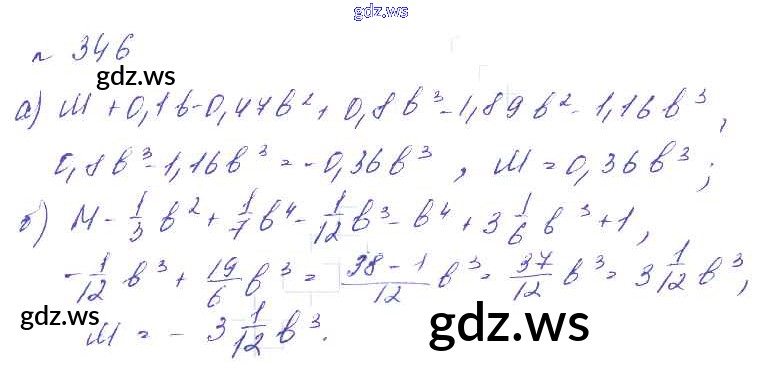 gdz.ws
n 346
gdz.ws
а) M + 0,1b - 0,47b² + 0,8b³ - 1,89b² - 1,16b³,
0,8b³ - 1,16b³ = -0,36b³, M = 0,36b³;
б) M - 1/3 b² + 1/7 b⁴ - 1/12 b³ - b⁴ + 3 1/6 b³ + 1,
- 1/12 b³ + 19/6 b³ = (38 - 1)/12 b³ = 37/12 b³ = 3 1/12 b³,
gdz.ws
M = - 3 1/12 b³.
gdz.ws